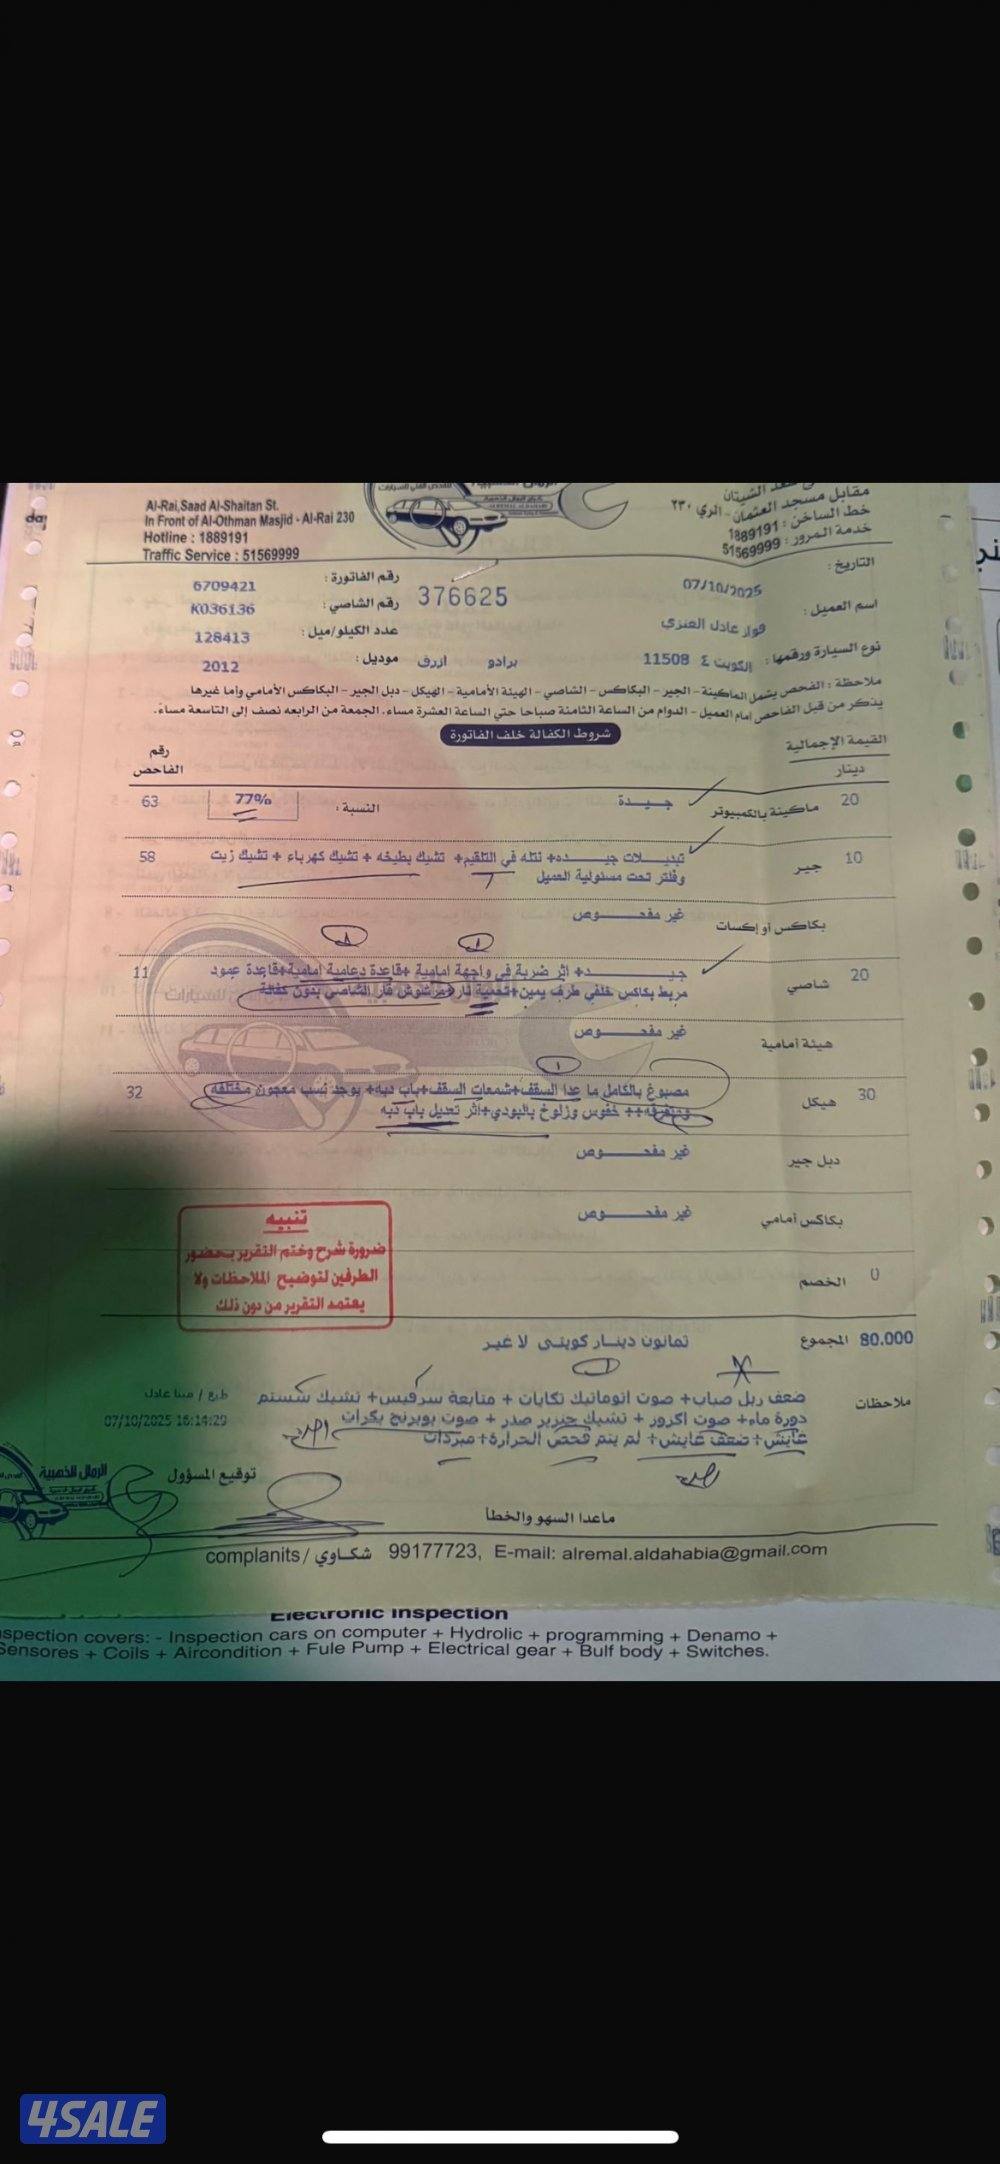 Al-Rai,Saad Al-Shaitan St.
In Front of Al-Othman Masjid - Al-Rai 230
Hotline : 1889191
Traffic Service : 51569999
سعد الشيتان
مقابل مسجد العثمان - الري ٢٣٠
خط الساخن : 1889191
خدمة المرور : 51569999
التاريخ : 07/10/2025
رقم الفاتورة : 6709421
376625
اسم العميل : فواز عادل العنزي
رقم الشاصي : K036136
عدد الكيلو/ميل : 128413
نوع السيارة ورقمها : الكويت ٤ 11508 برادو ازرق
موديل : 2012
ملاحظة : الفحص يشمل الماكينة - الجير - البكاكس - الشاصي - الهيئة الأمامية - الهيكل - دبل الجير - البكاكس الأمامي وإما غيرها
يذكر من قبل الفاحص امام العميل - الدوام من الساعة الثامنة صباحا حتي الساعة العشرة مساء. الجمعة من الرابعه نصف إلى التاسعة مساء.
شروط الكفالة خلف الفاتورة
القيمة الإجمالية
دينار
رقم الفاحص
20 ماكينة بالكمبيوتر جيدة النسبة : 77% 63
10 جير تبديلات جيده+ نتله في التلقيم+ تشيك بطيخه + تشيك كهرباء + تشيك زيت 58
وفلتر تحت مسئولية العميل
بكاكس أو إكسات غير مفحوص
20 شاصي جيد+ اثر ضربة في واجهة امامية +قاعدة دعامية امامية+قاعدة عمود 11
مربط بكاكس خلفي طرف يمين+تحمية نار+مرشوش قار الشاصي بدون كفالة
هيئة أمامية غير مفحوص
30 هيكل مصبوغ بالكامل ما عدا السقف+شمعات السقف+باب دبه+ يوجد نسب معجون مختلفه 32
ومتفرقه++ خفوس وزلوخ بالبودي+اثر تعديل باب دبه
دبل جير غير مفحوص
بكاكس أمامي غير مفحوص
0 الخصم
تنبيه
ضرورة شرح وختم التقرير بحضور
الطرفين لتوضيح الملاحظات ولا
يعتمد التقرير من دون ذلك
80.000 المجموع ثمانون دينار كويتى لا غير
ملاحظات ضعف ربل صباب+ صوت اتوماتيك تكايات + متابعة سرفيس+ تشيك سستم
دورة ماء+ صوت اكزوز + تشيك جنزير صدر + صوت بوبرنج بكرات
عايش+ضعف عايش+ لم يتم فحص الحرارة+ مبردات
طبع / مينا عادل
07/10/2025 16:14:29
توقيع المسؤول
الرمال الذهبية
ماعدا السهو والخطأ
complanits / شكاوي 99177723, E-mail: alremal.aldahabia@gmail.com
Electronic Inspection
spection covers: - Inspection cars on computer + Hydrolic + programming + Denamo +
Sensores + Coils + Aircondition + Fule Pump + Electrical gear + Bulf body + Switches.
4SALE